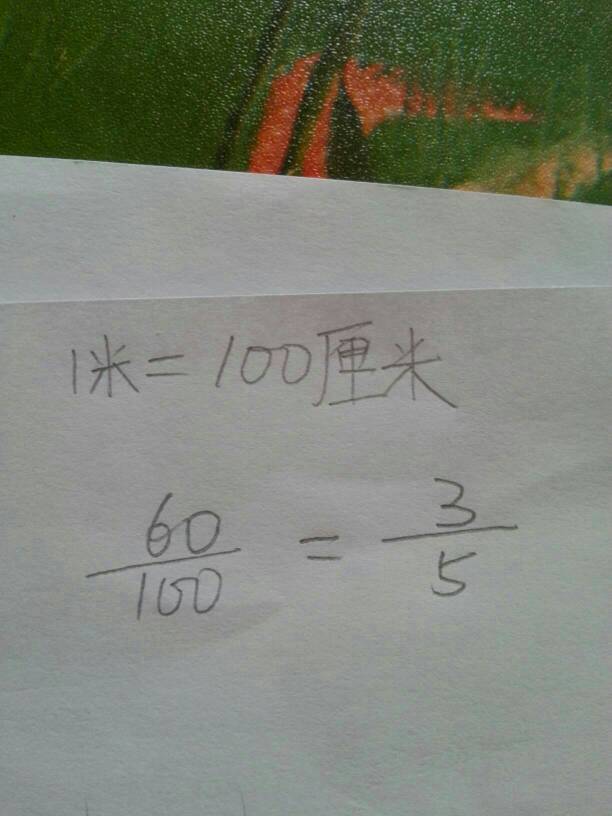 1米=100厘米
60/100 = 3/5